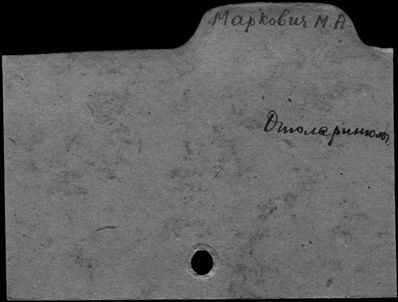 Маркович М. А.
Отоларинголог